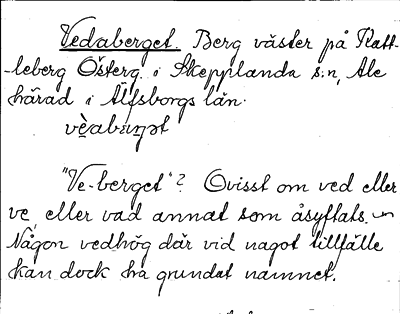 Vedaberget. Berg väster på Katt-
leberg Österg. i Skepplanda s:n, Ale
härad i Älfsborgs län.
"Ve-berget"? Ovisst om ved eller
ve, eller vad annat som åsyftats.
Någon vedhög där vid nagot tillfälle
kan dock ha grundat namnet.